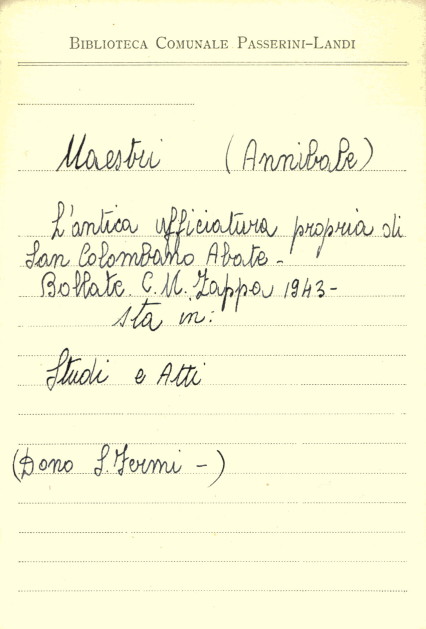 BIBLIOTECA COMUNALE PASSERINI-LANDI
Maestri (Annibale)
L'antica ufficiatura propria di
San Colombano Abate -
Bollate. C. M. Zappa 1943 -
sta in:
Studi e Atti
(Dono S. Fermi - )